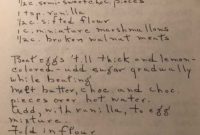 1/2c. semi-sweet choc. pieces
1 tsp. vanilla
1/2c. sifted flour
1c. miniature marshmallows
1/2c. broken walnut meats
Beat eggs 'till thick and lemon-
colored - add sugar gradually
while beating
Melt butter, choc. and choc.
pieces over hot water.
Add with vanilla, to egg
mixture.
Fold in flour